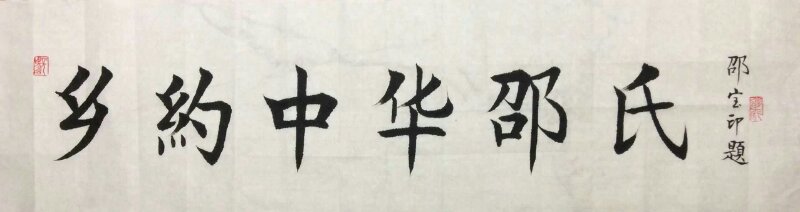 乡約中华邵氏
邵宝印題